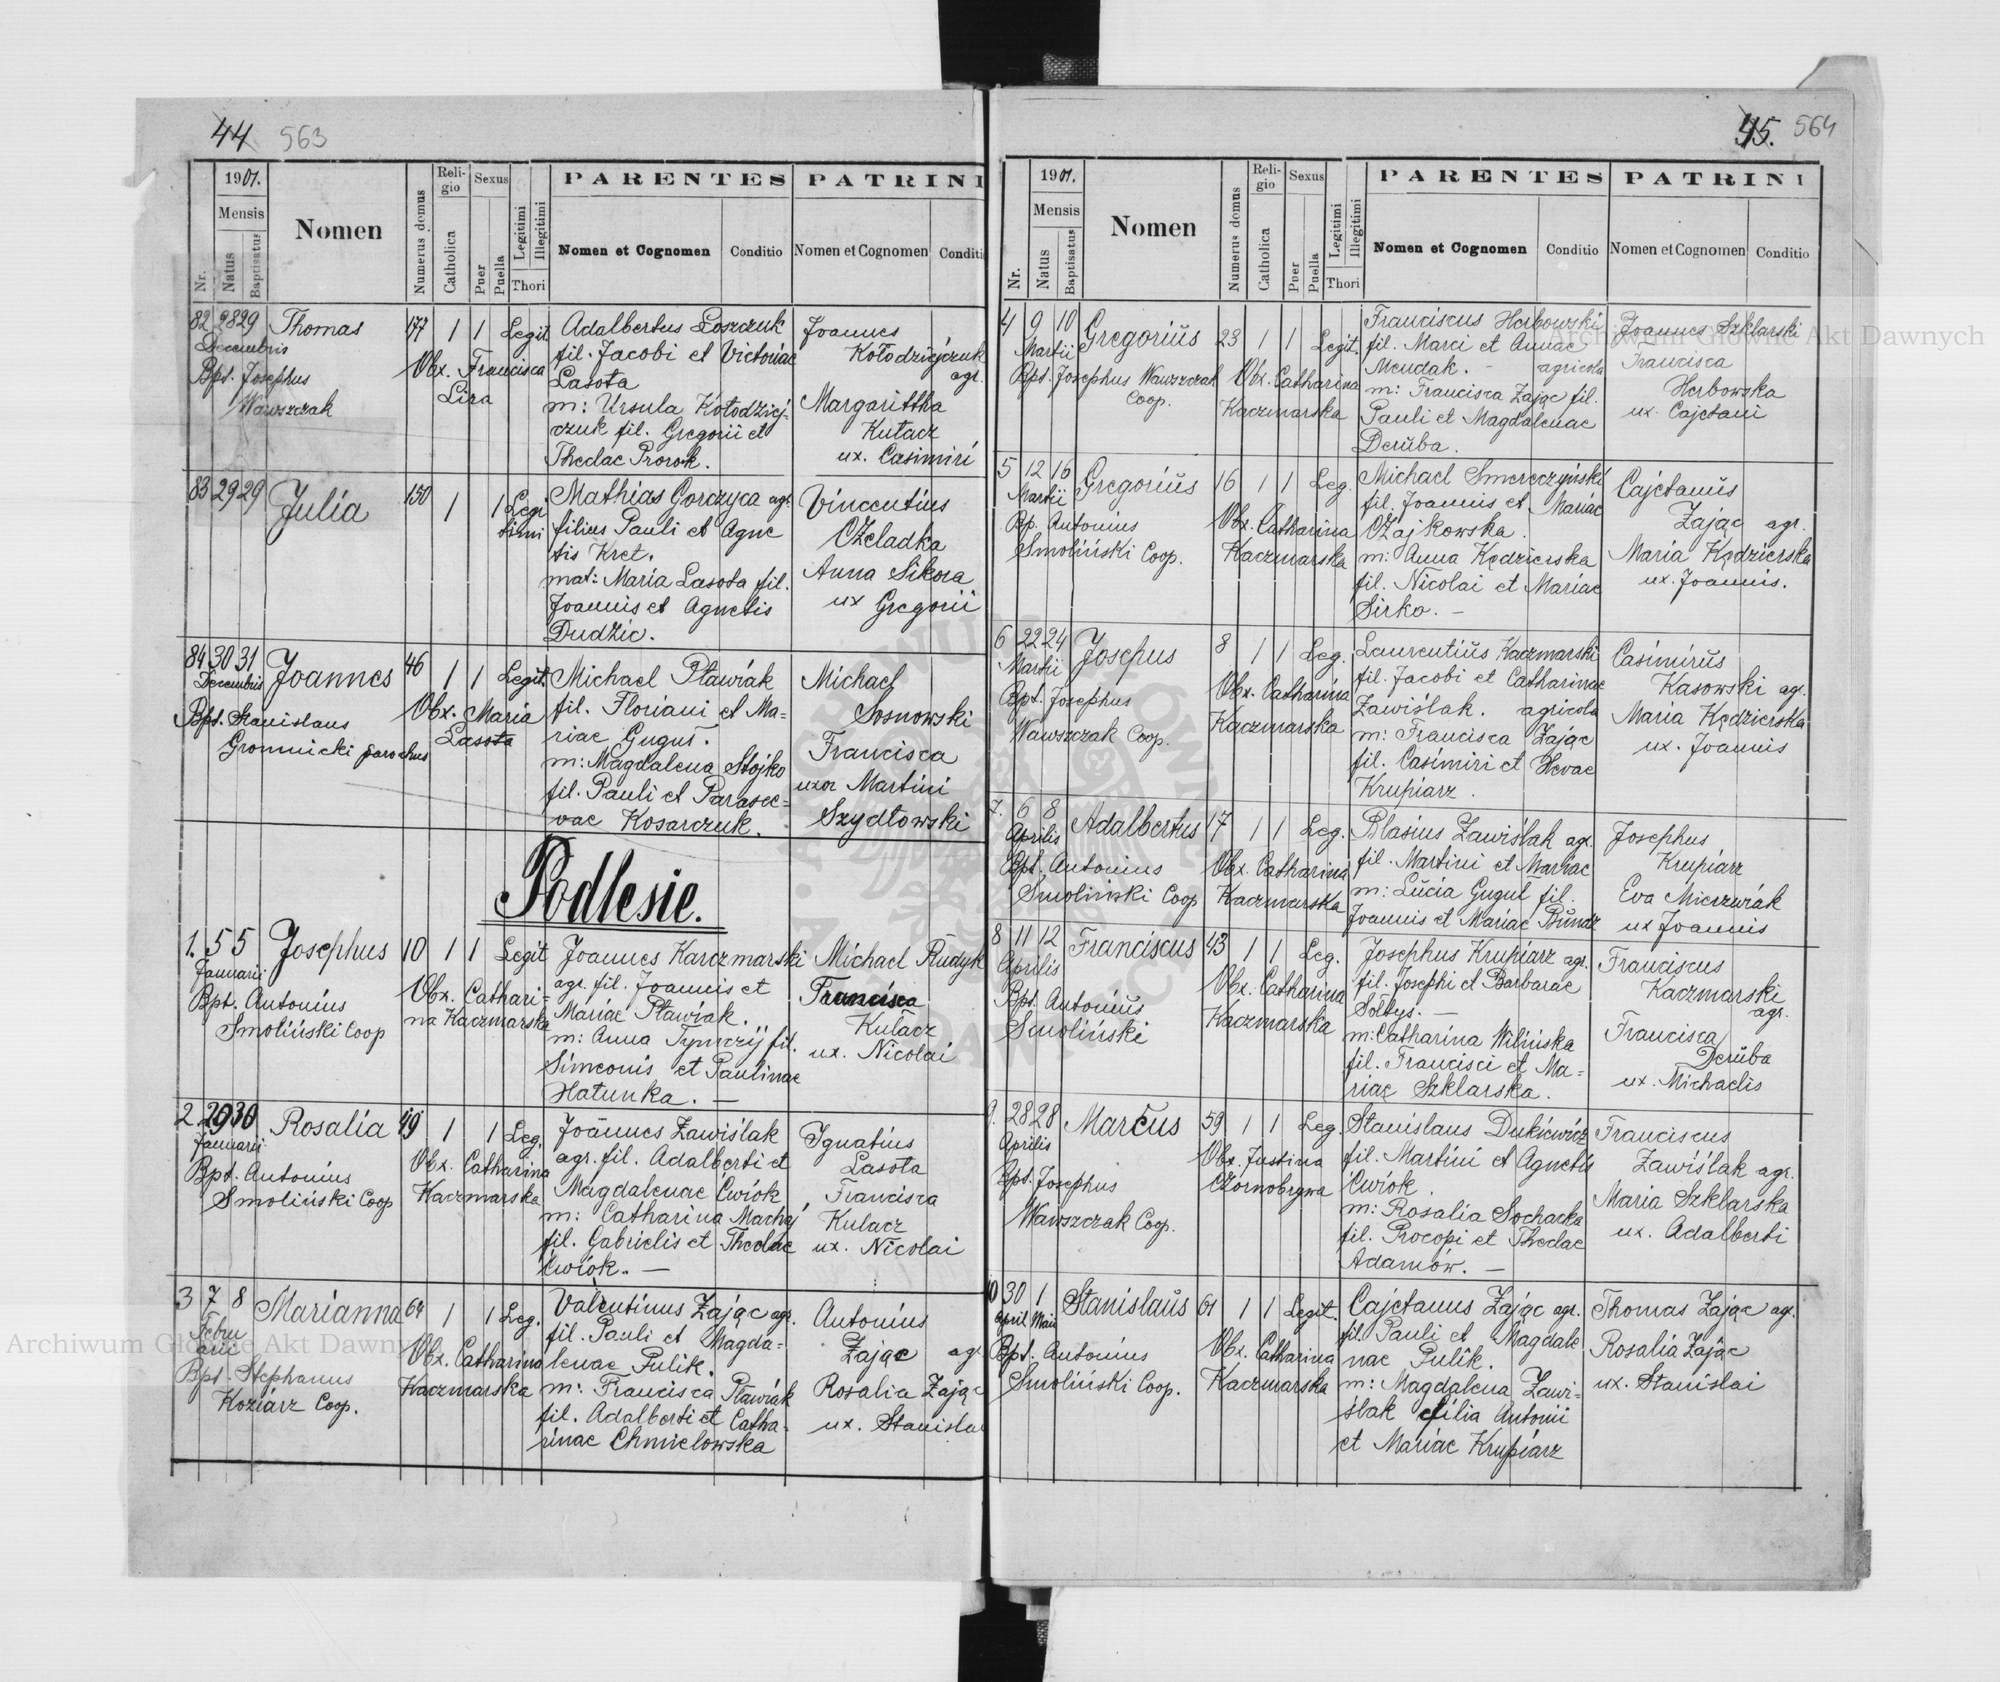 44 563
1901.
Mensis
Nr.
Natus
Baptisatus
Nomen
Numerus domus
Religio
Catholica
Sexus
Puer
Puella
Legitimi
Illegitimi
Thori
PARENTES
Nomen et Cognomen
Conditio
PATRINI
Nomen et Cognomen
Conditi
82 28 29 Thomas 177 1 1 Legit. Adalbertus Loszczuk Joannes
Decembris fil. Jacobi et Victoriae Kołodziejczuk
Bpt. Josephus Obx. Francisca Lasota agr.
Wawszczak Lira m: Ursula Kołodziej- Margarittha
czuk fil. Gregorii et Kułacz
Theclae Prorok. ux. Casimiri
83 29 29 Julia 150 1 1 Legi Mathias Gorczyca agr. Vincentius
timi filius Pauli et Agne Czeladka
tis Kret. Anna Sikora
mat: Maria Lasota fil. ux Gregorii
Joannis et Agnetis
Dudzic.
84 30 31 Joannes 46 1 1 Legit. Michael Pławiak Michael
Decembris fil. Floriani et Ma= Sosnowski
Bpt. Stanislaus Obx. Maria riae Guguł. Francisca
Gromnicki parochus Lasota m: Magdalena Stojko uxor Martini
fil. Pauli et Parasce= Szydłowski
vae Kosarczuk.
Podlesie.
1. 5 5 Josephus 10 1 1 Legit Joannes Karczmarski Michael Rudyk
Januarii agr. fil. Joannis et Francisca
Bpt. Antonius Obx. Cathari- Mariae Pławiak. Kułacz
Smoliński Coop na Kaczmarska m: Anna Tymczij fil. ux. Nicolai
Simeonis et Paulinae
Hatunka. —
2 29 30 Rosalia 49 1 1 Leg. Joannes Zawiślak Ignatius
Januarii agr. fil. Adalberti et Lasota
Bpt. Antonius Obx. Catharina Magdalenae Ćwiok Francisca
Smoliński Coop Kaczmarska m: Catharina Machaj Kulacz
fil. Gabrielis et Theclae ux. Nicolai
Ćwiok. —
3 7 8 Marianna 64 1 1 Leg. Valentinus Zając agr. Antonius
Febru fil. Pauli et Magda= Zając agr
arii Obx. Catharina lenae Pulik. Rosalia Zając
Bpt. Stephanus Kaczmarska m: Francisca Pławiak ux. Stanislai
Koziarz Coop. fil. Adalberti et Catha-
rinae Chmielowska
45. 564
1901.
Mensis
Nr.
Natus
Baptisatus
Nomen
Numerus domus
Religio
Catholica
Sexus
Puer
Puella
Legitimi
Illegitimi
Thori
PARENTES
Nomen et Cognomen
Conditio
PATRINI
Nomen et Cognomen
Conditio
4 9 10 Gregoriŭs 23 1 1 Legit. Franciscus Herbowski Joannes Szklarski
Martii fil. Marci et Annae Francisca
Bpt. Josephus Wawszczak Obx. Catharina Mendak. - agricola Herbowska
Coop. Kaczmarska m: Francisca Zając fil. ux. Cajetani
Pauli et Magdalenae
Derŭba.
5 12 16 Gregoriŭs 16 1 1 Leg. Michael Smereczyński Cajetanŭs
Martii fil. Joannis et Mariae Zając agr.
Bp. Antonius Obx. Catharina Czajkowska. Maria Kędzierska
Smoliński Coop. Kaczmarska m: Anna Kędzierska ux. Joannis.
fil. Nicolai et Mariae
Sirko. —
6 22 24 Josepus 8 1 1 Leg. Laurentiŭs Kaczmarski Casimirŭs
Martii fil. Jacobi et Catharinae Kasowski agr.
Bpt. Josephus Obx. Catharina Zawiślak. agricola Maria Kędzierska
Wawszczak Coop. Kaczmarska m: Francisca Zając ux. Joannis
fil. Casimiri et Hevae
Krupiarz.
7. 6 8 Adalbertus 17 1 1 Leg. Blasius Zawiślak agr. Josephus
Aprilis fil. Martini et Mariae Krupiarz
Bpt. Antonius Obx. Catharina m: Lŭcia Guguł fil. Eva Mierzwiak
Smoliński Coop Kaczmarska Joannis et Mariae Bŭndz ux Joannis
8 11 12 Franciscus 43 1 1 Leg. Josephus Krupiarz agr. Franciscus
Aprilis fil. Josephi et Barbarae Kaczmarski
Bpt. Antoniŭs Obx. Catharina Sołtys. — agr.
Smoliński Kaczmarska m: Catharina Wilińska Francisca
fil. Francisci et Ma= Derŭba
riae Szklarska. ux. Michaelis
9. 28 28 Marcus 59 1 1 Leg. Stanislaus Dukiewicz Franciscus
Aprilis fil. Martini et Agnetis Zawiślak agr.
Bpt. Josephus Obx. Justina Ćwiok. Maria Szklarska
Wawszczak Coop. Czornobrywa m: Rosalia Sochacka ux. Adalberti
fil. Procopi et Theclae
Adamów. —
10 30 1 Stanislaŭs 61 1 1 Legit. Cajetanus Zając agr. Thomas Zając agr.
April Maii fil. Pauli et Magdale Rosalia Zając
Bpt. Antonius Obx. Catharina nae Pulik. ux. Stanislai
Smoliński Coop. Kaczmarska m: Magdalena Zawi=
ślak filia Antonii
et Mariae Krupiarz
Archiwum Główne Akt Dawnych
Archiwum Główne Akt Dawnych